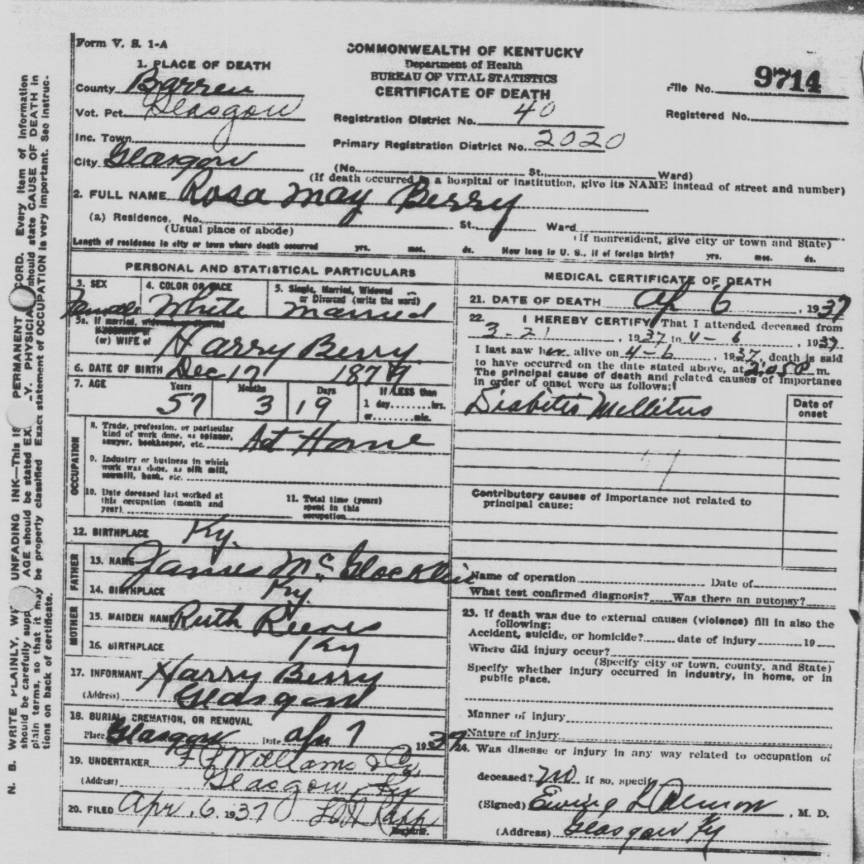 Form V. S. 1-A
COMMONWEALTH OF KENTUCKY
Department of Health
BUREAU OF VITAL STATISTICS
CERTIFICATE OF DEATH
File No. 9714
Registered No.
Registration District No. 40
Primary Registration District No. 2020
1. PLACE OF DEATH
County Barren
Vot. Pct. Glasgow
Inc. Town
City Glasgow
(No. St. Ward)
(If death occurred in a hospital or institution, give its NAME instead of street and number)
2. FULL NAME Rosa May Berry
(a) Residence. No. St. Ward
(Usual place of abode) (If nonresident, give city or town and State)
Length of residence in city or town where death occurred yrs. mos. ds. How long in U. S., if of foreign birth? yrs. mos. ds.
PERSONAL AND STATISTICAL PARTICULARS
3. SEX Female
4. COLOR OR RACE White
5. Single, Married, Widowed
or Divorced (write the word)
Married
5a. If married, widowed
(or) WIFE of Harry Berry
6. DATE OF BIRTH Dec 17 1879
7. AGE Years 57 Months 3 Days 19 If LESS than
1 day hrs.
or min.
OCCUPATION
8. Trade, profession, or particular
kind of work done, as spinner,
sawyer, bookkeeper, etc. At Home
9. Industry or business in which
work was done, as silk mill,
sawmill, bank, etc.
10. Date deceased last worked at
this occupation (month and
year)
11. Total time (years)
spent in this
occupation
12. BIRTHPLACE Ky.
FATHER
13. NAME James Mc
14. BIRTHPLACE Ky.
MOTHER
15. MAIDEN NAME Ruth Reeves
16. BIRTHPLACE Ky
17. INFORMANT Harry Berry
(Address) Glasgow
18. BURIAL, CREMATION, OR REMOVAL
Place Glasgow Date Apr 7 1937
19. UNDERTAKER Williams & Co
(Address) Glasgow, Ky
20. FILED Apr. 6 1937
Registrar.
MEDICAL CERTIFICATE OF DEATH
21. DATE OF DEATH Ap 6, 1937
22. I HEREBY CERTIFY, That I attended deceased from
3-21, 1937 to 4-6, 1937
I last saw her alive on 4-6, 1937, death is said
to have occurred on the date stated above, at 2:05 P m.
The principal cause of death and related causes of importance
in order of onset were as follows:
Date of
onset
Diabitis Mellitus
Contributory causes of importance not related to
principal cause:
Name of operation Date of
What test confirmed diagnosis? Was there an autopsy?
23. If death was due to external causes (violence) fill in also the
following:
Accident, suicide, or homicide? date of injury 19
Where did injury occur?
(Specify city or town, county, and State)
Specify whether injury occurred in industry, in home, or in
public place.
Manner of injury
Nature of injury
24. Was disease or injury in any way related to occupation of
deceased? No if so, specify
(Signed) Ewing, M. D.
(Address) Glasgow Ky